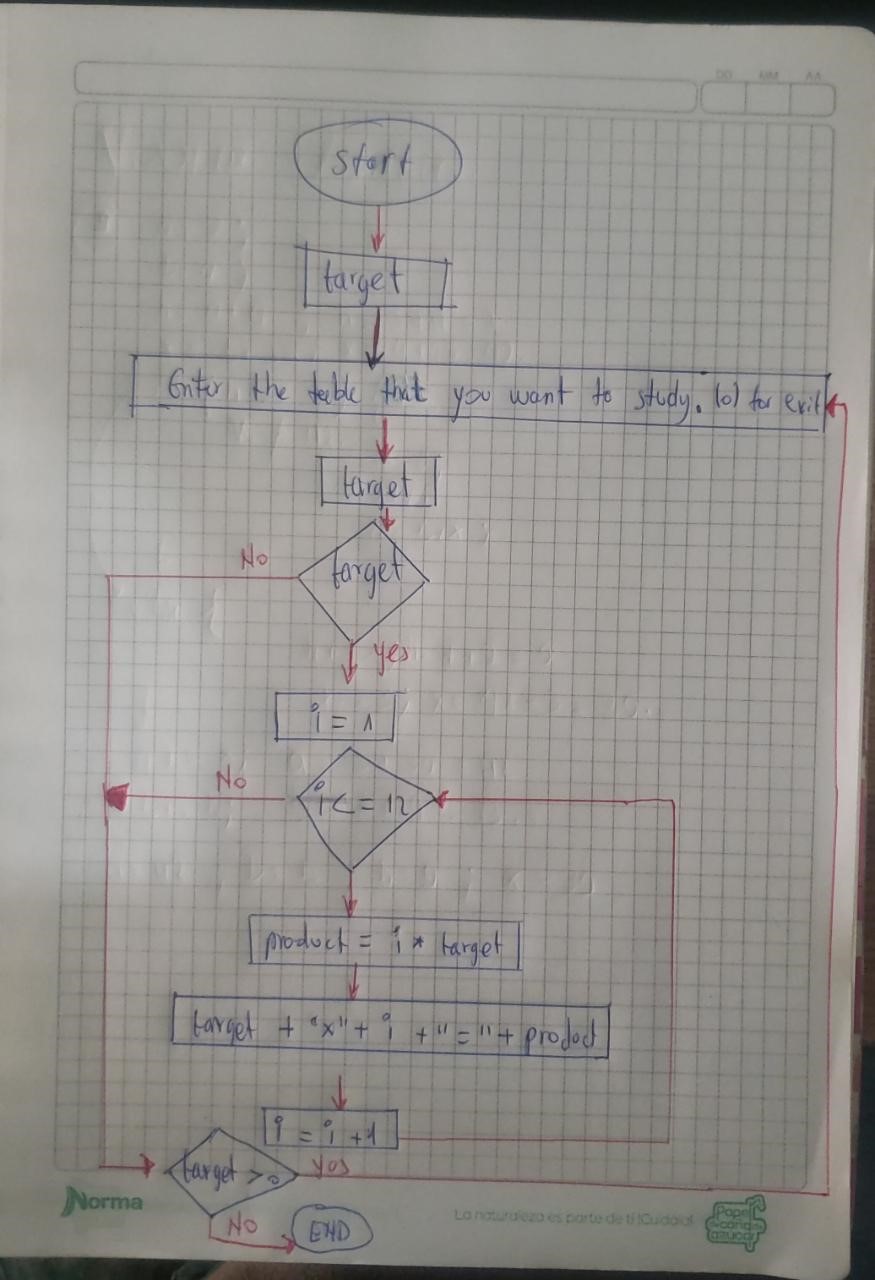 DD MM AA
start
target
Enter the table that you want to study. (0) for exit
target
target
No
yes
i = 1
No
i <= 12
product = i * target
target + "x" + i + "=" + product
i = i + 1
target > 0
yes
No
END
Norma
La naturaleza es parte de ti ¡Cuídala!
Papel
caña de
azúcar